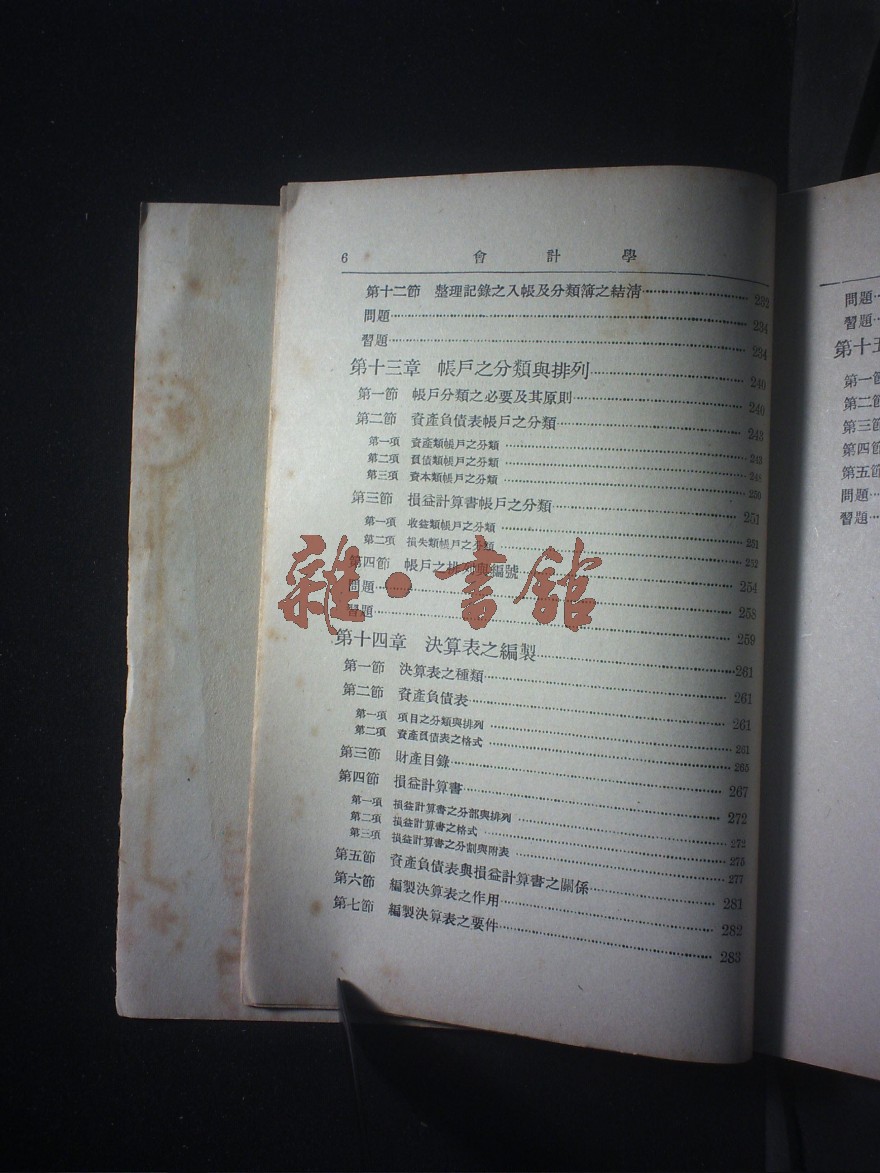 6 會計學
第十二節 整理記錄之入帳及分類簿之結清 232
問題 234
習題 234
第十三章 帳戶之分類與排列 240
第一節 帳戶分類之必要及其原則 240
第二節 資產負債表帳戶之分類 243
第一項 資產類帳戶之分類 243
第二項 負債類帳戶之分類 248
第三項 資本類帳戶之分類 250
第三節 損益計算書帳戶之分類 251
第一項 收益類帳戶之分類 251
第二項 損失類帳戶之分類 252
第四節 帳戶之排列與編號 254
問題 258
習題 259
第十四章 決算表之編製 261
第一節 決算表之種類 261
第二節 資產負債表 261
第一項 項目之分類與排列 261
第二項 資產負債表之格式 265
第三節 財產目錄 267
第四節 損益計算書 272
第一項 損益計算書之分部與排列 272
第二項 損益計算書之格式 275
第三項 損益計算書之分割與附表 277
第五節 資產負債表與損益計算書之關係 281
第六節 編製決算表之作用 282
第七節 編製決算表之要件 283
雜·書館
問題
習題
第十五
第一節
第二節
第三節
第四節
第五節
問題
習題